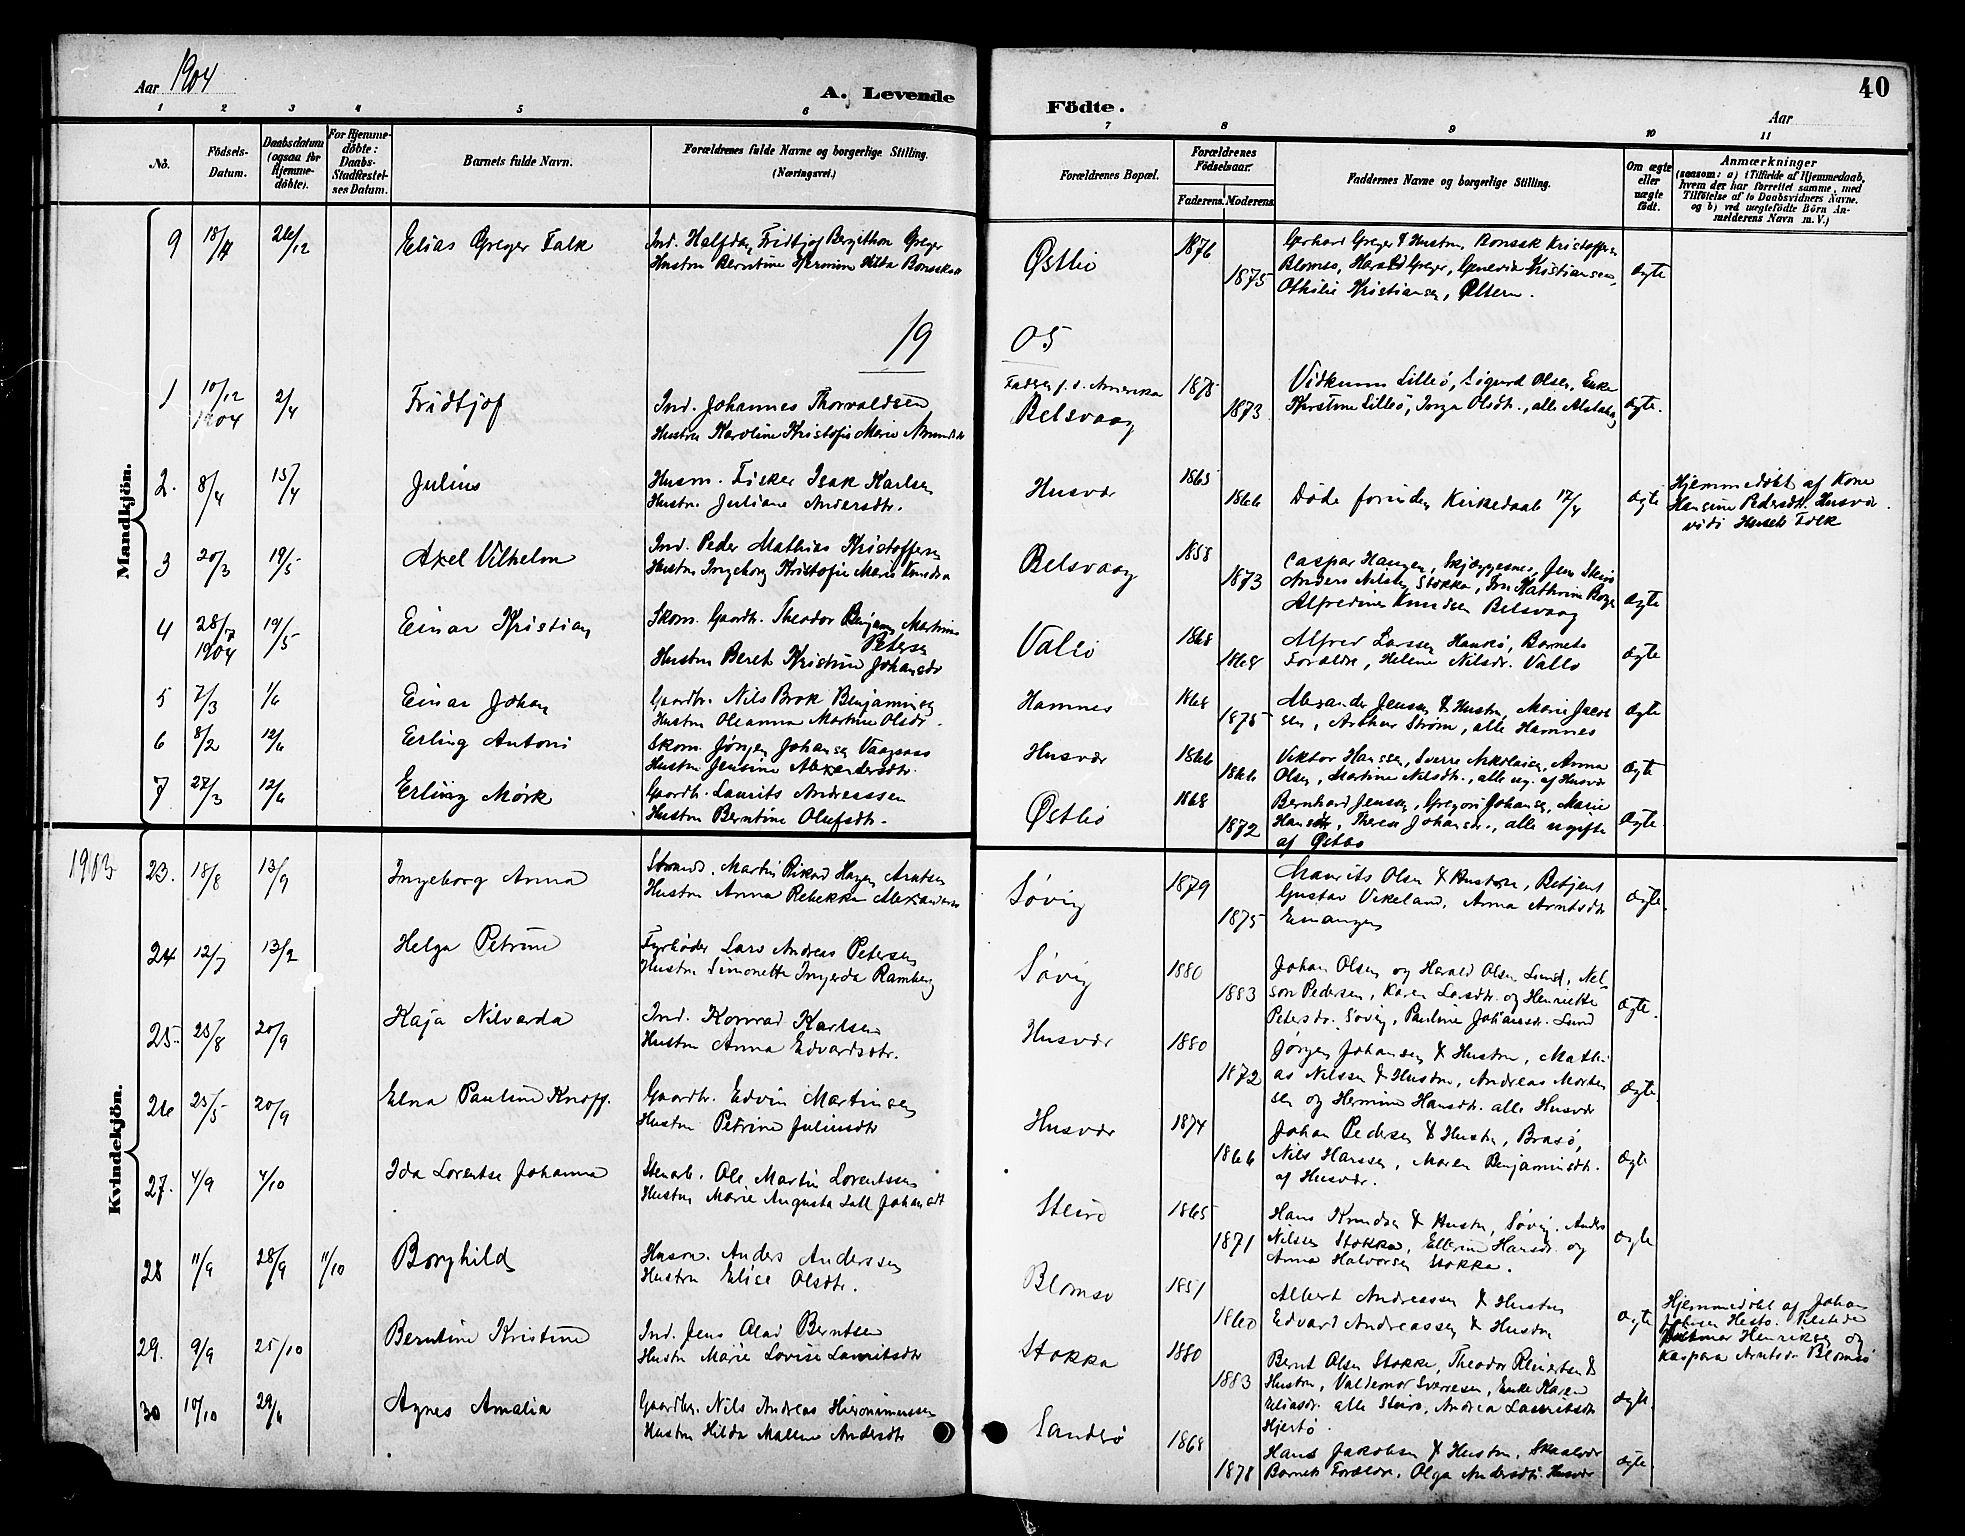 Aar 1904
A. Levende
Födte.
40
Aar
1 2 3 4 5 6 7 8 9 10 11
No.
Födsels-Datum.
Daabsdatum (ogsaa for Hjemme-döbte).
For Hjemme-döbte: Daabs-Stadfæstel-ses Datum.
Barnets fulde Navn.
Forældrenes fulde Navne og borgerlige Stilling. (Næringsvei.)
Forældrenes Bopæl.
Forældrenes Födselsaar.
Faderens. Moderens.
Faddernes Navne og borgerlige Stilling.
Om ægte eller uægte födt.
Anmærkninger
(saasom: a) i Tilfælde af Hjemmedaab, hvem der har forrettet samme, med Tilföielse af to Daabsvidners Navne. og b) ved uægtefödte Börn An-melderens Navn m. V.)
Mandkjön.
9 18/11 26/12 Elias Greger Falk
Ind. Halfdan Fridtjof Bergithon Greger
Hustru Berntine Hermine Hilda Bonsak
Østbø 1876 1875
Gerhard Greger & Hustru, Bonsak Kristoffersen
Blomsø, Harald Greger, Kristiansen,
Othilie Kristiansen, Olsen.
ægte
19 05
1 10/12 1904 2/4 Fridtjof
Ind. Johannes Thorvaldsen
Hustru Karoline Kristofie Marie
Fader f. t. Amerika
Belsvaag 1875 1873
Vidkunn Lillesø, Sigurd Olsen, Enke
Kirstine Lillesø, Inga Olsdtr., alle Alstahaug
ægte.
2. 8/4 15/4 Julius
Husm. Fisker Isak Karlsen
Hustru Juliane Andersdtr.
Husvær 1865 1866
Døde forinden Kirkedaab 17/4
ægte
Hjemmedøbt af Kone
Hansine Pedersdtr. Husvær.
vidi Husets Folk
3 20/3 19/5 Axel Vilhelm
Ind. Peder Mathias Kristoffersen
Hustru Ingeborg Kristofie Marie Knudsen
Belsvaag 1858 1873
Caspar Haugen, Skjæggesnes, Jens Steirø
Anders Nilsen Stokka, Fru Kathrine
Alfredine Knudsen Belsvaag
ægte
4 28/7 1904 19/5 Einar Kristian
Skom. Gaardbr. Theodor Benjamin Martinus
Petersen
Hustru Beret Kristine Johansdtr
Valø 1868 1868
Alfred Larsen Hanskø, Barnets
Forældre, Helene Nilsdtr. Valø
ægte
5 7/3 1/6 Einar Johan
Gaardbr. Nils Brok Benjaminsen
Hustru Oleanna Martine Olsdtr.
Hamnes 1868 1875
Alexander Jensen & Hustru, Marie Jacob
sen, Arthur Strøm, alle Hamnes
ægte
6 8/2 12/6 Erling Antoni
Skom. Jørgen Johansen Vaagsaas
Hustru Jensine Alexandersdtr.
Husvær 1866 1866
Viktor Hansen, Sverre Nikolaisen, Anna
Olsen, Martine Nilsdtr., alle ug. af Husvær
ægte
7 27/3 12/6 Erling Mørk
Gaardbr. Laurits Andreassen
Hustru Berntine Olufsdtr.
Østbø 1868 1872
Bernhard Jensen, Gregori Johansen, Marie
Hansdtr., Therese Johansdtr., alle ugifte
af Østbø
ægte.
Kvindekjön.
1903
23. 18/8 13/9 Ingeborg Anna
Strands. Martin Rikard Hagen Arntsen
Hustru Anna Rebekka Alexandersen
Søvig 1879 1875
Maurits Olsen & Hustru, Betjent
Gustav Vikeland, Anna Arntsdtr
ægte.
24 12/7 13/9 Helga Petrine
Fyrbøder Lars Andreas Petersen
Hustru Simonette Ingerda Ramberg
Søvig 1880 1883
Johan Olsen og Harald Olsen Lund, Nel-
son Pedersen, Karen Larsdtr. og Henriette
Petersdtr. Søvig, Pauline Johansdtr. Lund
ægte.
25. 25/8 20/9 Kaja Nilvarda
Ind. Konrad Karlsen
Hustru Anna Edvardsdtr.
Husvær 1880 1872
Jørgen Johansen & Hustru, Mathi
as Nilsen & Hustru, Andreas Morten
sen og Hermine Hansdtr. alle Husvær
ægte.
26 25/5 20/9 Elna Pauline Knoff.
Gaardbr. Edvin Martinsen
Hustru Petrine Juliusdtr
Husvær 1874 1866
Johan Pedersen & Hustru, Brasø,
Nils Hansen, Maren Benjaminsdtr.
af Husvær.
ægte
27. 4/9 4/10 Ida Lorentse Johanna
Stenarb. Ole Martin Lorentssen
Hustru Marie Augusta Johansdtr
Steirø 1865 1871
Hans Knudsen & Hustru, Søvig, Anders
Nilsen Stokka, Ellerine Hansdtr. og
Anna Halvorsen Stokka.
ægte
28 11/9 28/9 11/10 Borghild
Husm. Anders Anderssen
Hustru Elise Olsdtr.
Blomsø 1851 1860
Albert Andreassen & Hustru
Edvard Andreassen & Hustru
ægte
Hjemmedøbt af Johan
Johnsen Hestø. Tilstede
Hilmar Henriksen og
Kaspara Arntsdtr Blomsø
29. 9/9 25/10 Berntine Kristine
Ind. Jens Olad Berntsen
Hustru Marie Lovise Lauritsdtr
Stokka 1880 1883
Bernt Olsen Stokke, Theodor Reinertsen &
Hustru, Valdemar Sverresen, Enke Karen
Eliasdr. alle Steirø, Andrea Lauritsdtr
Hjertø.
ægte.
30 10/10 29/6 Agnes Amalia
Gaardbr. Nils Andreas Hieronimussen
Hustru Hilda Malene Andersdtr
Sandsø 1868 1878
Hans Jakobsen & Hustru, Skaalvær
Barnets Forældre, Olga Andersdtr. Husvær
ægte.